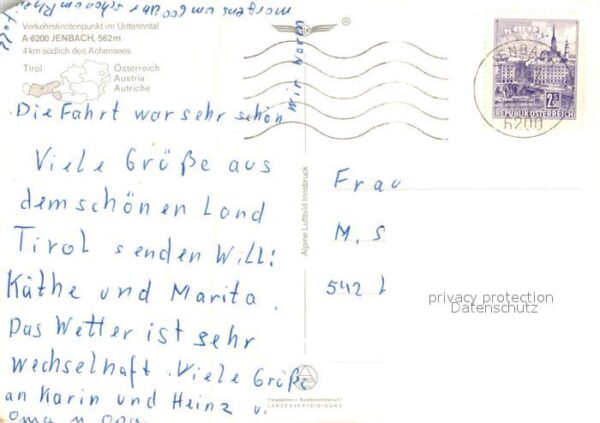 Verkehrsknotenpunkt im Unterinntal
A-6200 JENBACH, 562m
4 km südlich des Achensees
Tirol
Österreich
Austria
Autriche
Die Fahrt war sehr schön
wir waren
morgens um 900 Uhr schon am
Viele Größe aus
dem schönen Land
Tirol senden Willi
Käthe und Marita.
Das Wetter ist sehr
wechselhaft. Viele Größe
an Karin und Heinz u.
oma u opa
Alpine Luftbild Innsbruck
®
JENBACH
6200
REPUBLIK ÖSTERREICH
Frau
M. S
542
privacy protection
Datenschutz
Freigegeben v. Bundesministerium f.
LANDESVERTEIDIGUNG